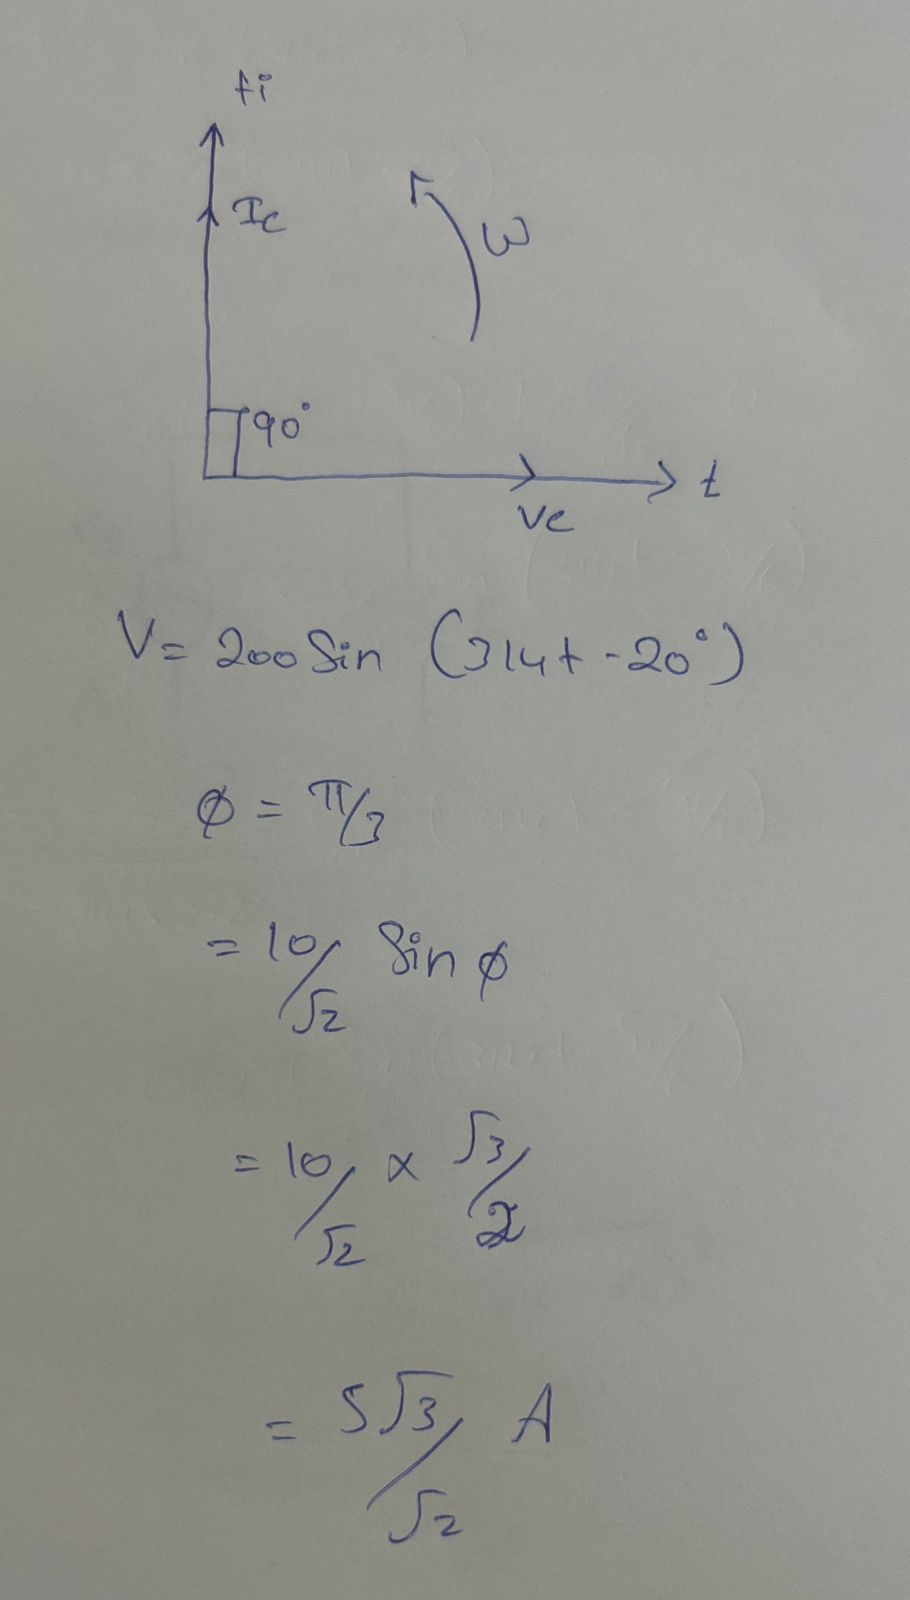 +i
Ic
ω
90°
t
Vc
V = 200 Sin (314t - 20°)
φ = π/3
= 10/√2 Sin φ
= 10/√2 × √3/2
= 5√3/√2 A